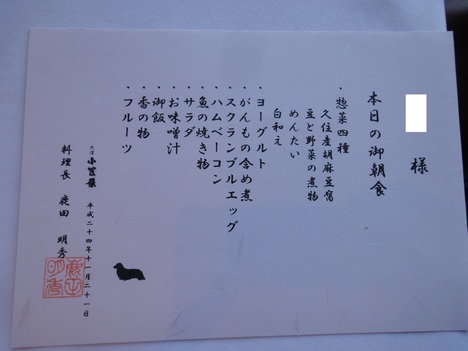 様
本日の御朝食
・惣菜四種
久住産胡麻豆腐
豆と野菜の煮物
めんたい
白和え
・ヨーグルト
・がんもの含め煮
・スクランブルエッグ
・ハムベーコン
・魚の焼き物
・サラダ
・お味噌汁
・御飯
・香の物
・フルーツ
小笠原 平成二十四年十一月二十一日
料理長 鹿田 明秀